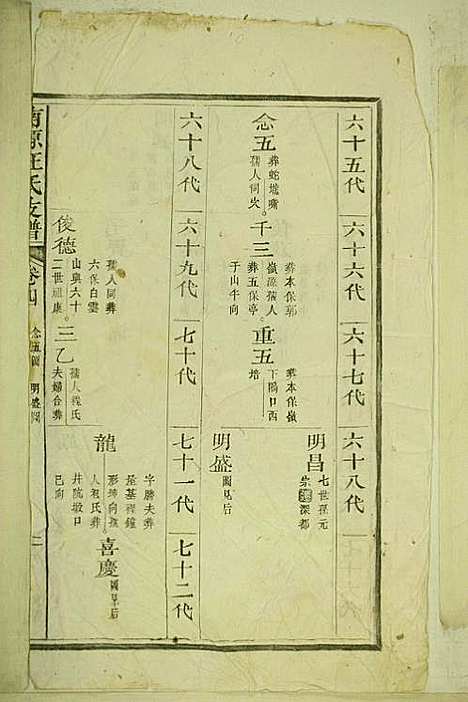 六十五代
六十六代
六十七代
六十八代
念五
葬蛇墟嘯
孺人同穴
千三
葬本保郭
嶺源孺人
葬五保亭
于山午向
重五
葬本保嶺
下隅口西
培
明昌
七世孫元
宗遷深都
明盛
圖見后
六十八代
六十九代
七十代
七十一代
七十二代
俊德
孺人同葬
六保白雲
山與六十
二世祖康
三乙
孺人程氏
夫婦合葬
龍
字勝夫葬
形坤向孺
人程氏葬
井坑墩口
巳向
喜慶
圖見后
南源汪氏支譜
卷四
念五圖
明盛圖